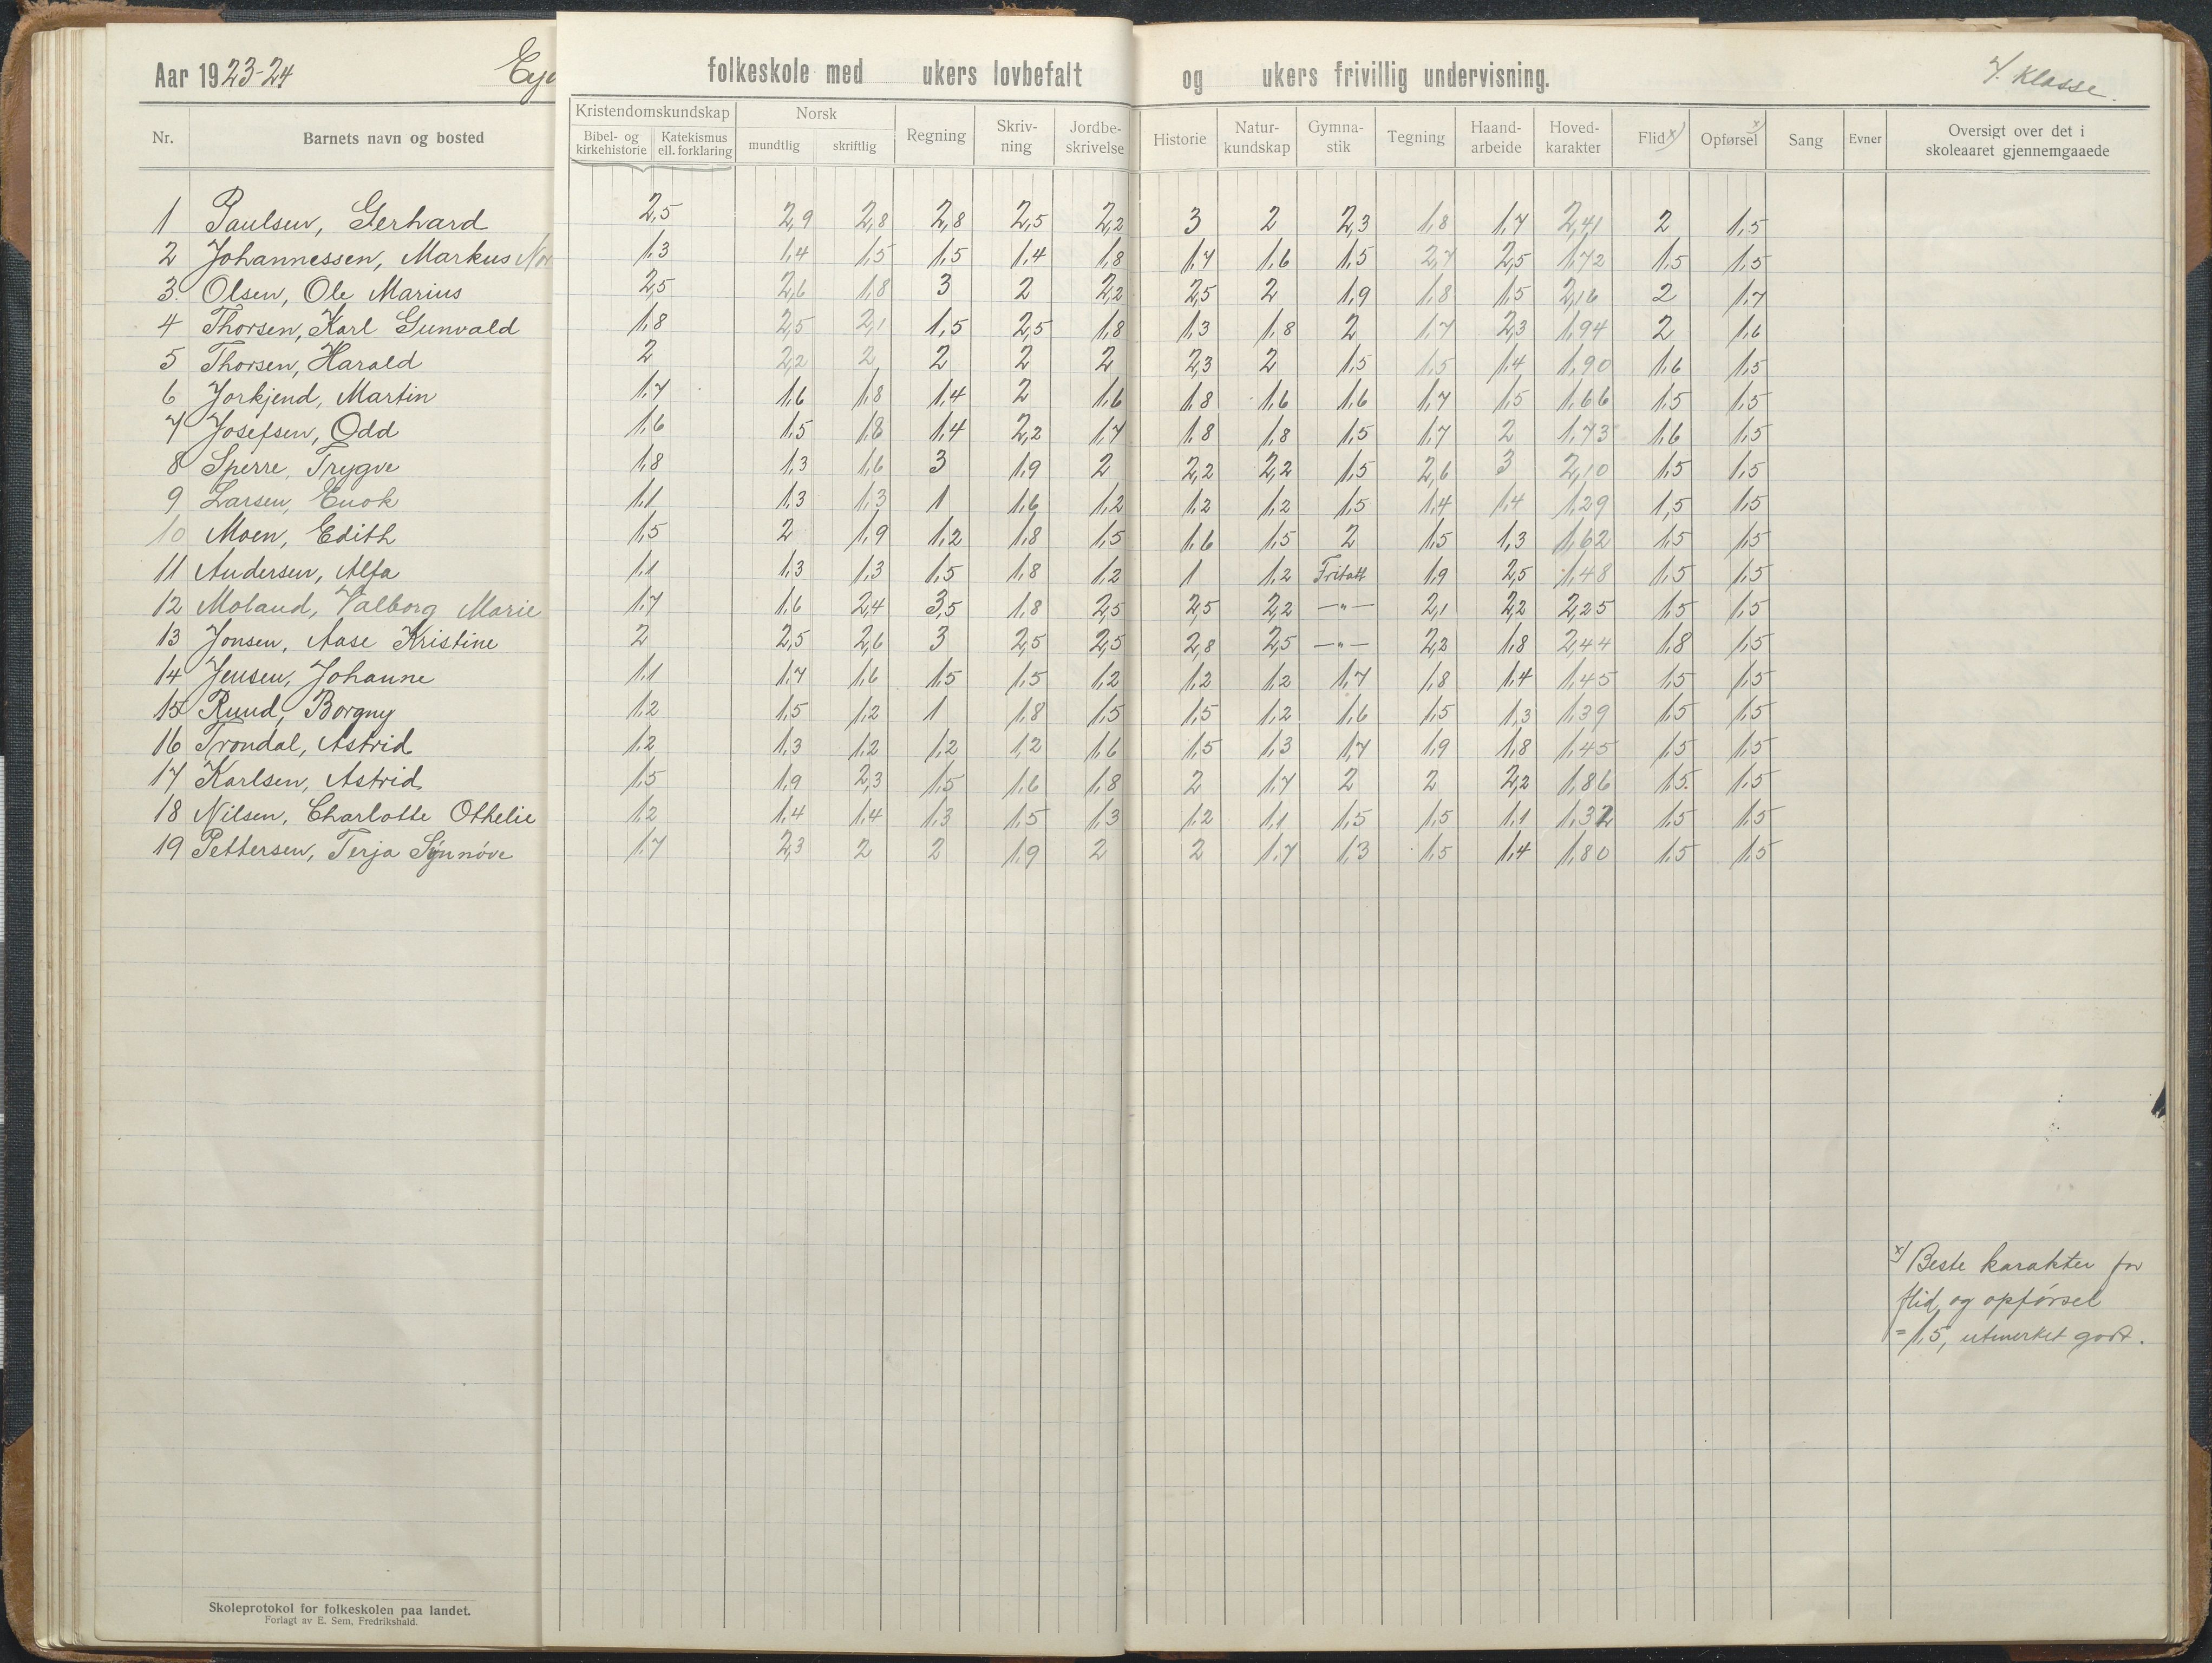 Aar 1923-24 folkeskole med ukers lovbefalt og ukers frivillig undervisning. klasse.
Nr. Barnets navn og bosted Kristendomskundskap Bibel- og kirkehistorie Katekismus ell. forklaring Norsk mundtlig skriftlig Regning Skriv-ning Jordbe-skrivelse Historie Natur-kundskap Gymna-stik Tegning Haand-arbeide Hoved-karakter Flid x) Opførsel x) Sang Evner Oversigt over det i skoleaaret gjennemgaaede
1 Paulsen, Gerhard 2,5 2,9 2,8 2,8 2,5 2,2 3 2 2,3 1,8 1,7 2,41 2 1,5
2 Johannessen, Markus 1,3 1,4 1,5 1,5 1,4 1,8 1,7 1,6 1,5 2,7 2,5 1,72 1,5 1,5
3. Olsen, Ole Marius 2,5 2,6 1,8 3 2 2,2 2,5 2 1,9 1,8 1,5 2,16 2 1,7
4 Thorsen, Karl Gunvald 1,8 2,5 2,1 1,5 2,5 1,8 1,3 1,8 2 1,7 2,3 1,94 2 1,6
5 Thorsen, Harald 2 2,2 2 2 2 2 2,3 2 1,5 1,5 1,4 1,90 1,6 1,5
6 Jorkjend, Martin 1,7 1,6 1,8 1,4 2 1,6 1,8 1,6 1,6 1,7 1,5 1,66 1,5 1,5
7 Josefsen, Odd 1,6 1,5 1,8 1,4 2,2 1,7 1,8 1,8 1,5 1,7 2 1,73 1,6 1,5
8 Sperre, Trygve 1,8 1,3 1,6 3 1,9 2 2,2 2,2 1,5 2,6 3 2,10 1,5 1,5
9 Larsen, Enok 1,1 1,3 1,3 1 1,6 1,2 1,2 1,2 1,5 1,4 1,4 1,29 1,5 1,5
10 Moen, Edith 1,5 2 1,9 1,2 1,8 1,5 1,6 1,5 2 1,5 1,3 1,62 1,5 1,5
11 Andersen, Alfa 1,1 1,3 1,3 1,5 1,8 1,2 1 1,2 Fritatt 1,9 2,5 1,48 1,5 1,5
12 Moland, Valborg Marie 1,7 1,6 2,4 3,5 1,8 2,5 2,5 2,2 —"— 2,1 2,2 2,25 1,5 1,5
13 Jonsen, Aase Kristine 2 2,5 2,6 3 2,5 2,5 2,8 2,5 —"— 2,2 1,8 2,44 1,8 1,5
14 Jensen, Johanne 1,1 1,7 1,6 1,5 1,5 1,2 1,2 1,2 1,7 1,8 1,4 1,45 1,5 1,5
15 Ruud, Borgny 1,2 1,5 1,2 1 1,8 1,5 1,5 1,2 1,6 1,5 1,3 1,39 1,5 1,5
16 Trondal, Astrid 1,2 1,3 1,2 1,2 1,2 1,6 1,5 1,3 1,7 1,9 1,8 1,45 1,5 1,5
17 Karlsen, Astrid 1,5 1,9 2,3 1,5 1,6 1,8 2 1,7 2 2 2,2 1,86 1,5. 1,5
18 Nilsen, Charlotte Othelie 1,2 1,4 1,4 1,3 1,5 1,3 1,2 1,1 1,5 1,5 1,1 1,32 1,5 1,5
19 Pettersen, Terja Synnøve 1,7 2,3 2 2 1,9 2 2 1,7 1,3 1,5 1,4 1,80 1,5 1,5
x) Beste karakter for
flid og opførsel
= 1,5, utmerket godt.
Skoleprotokol for folkeskolen paa landet.
Forlagt av E. Sem, Fredrikshald.